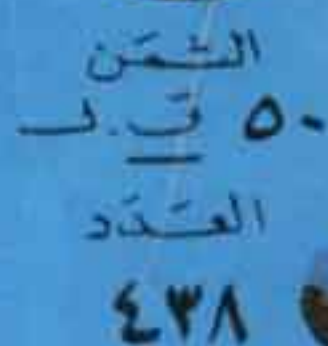 الثمن
٥٠ ق.ل
العدد
٤٣٨